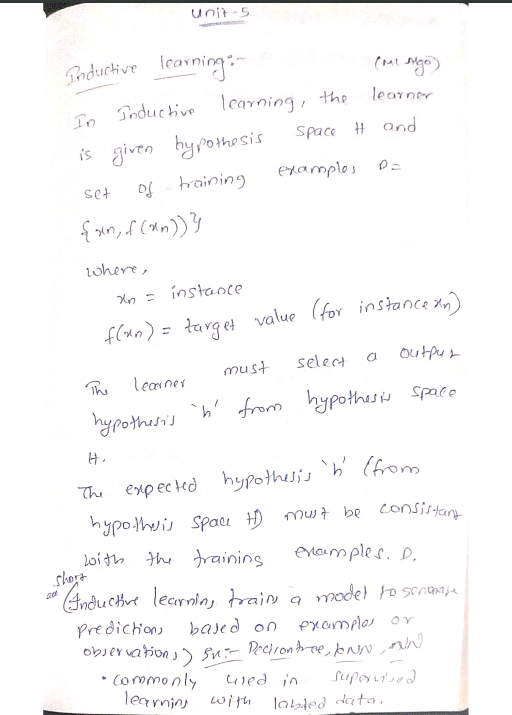 Unit-5
Inductive learning:-
(ML Algo)
In Inductive learning, the learner
is given hypothesis space H and
set of training examples D=
{xn, f(xn))}
where,
xn = instance
f(xn) = target value (for instance xn)
The learner must select a output
hypothesis 'h' from hypothesis space
H.
The expected hypothesis 'h' (from
hypothesis space H) must be consistant
with the training examples. D.
short
(Inductive learning trains a model to
predictions based on examples or
observations) Ex:- Decisiontree, KNN, NN
• commonly used in supervised
learning with labled data.